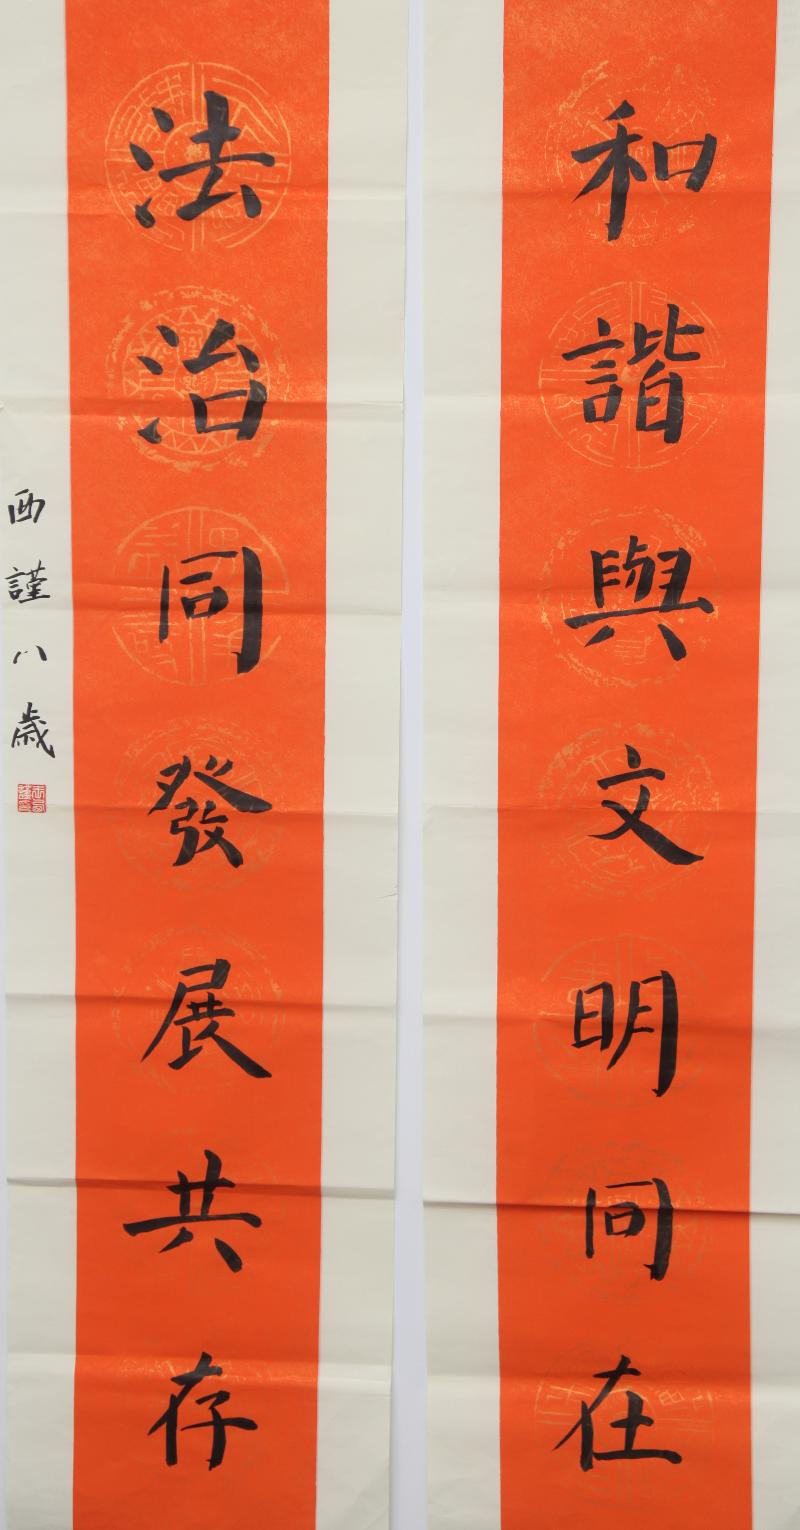 和諧與文明同在
法治同發展共存
西謹八歲